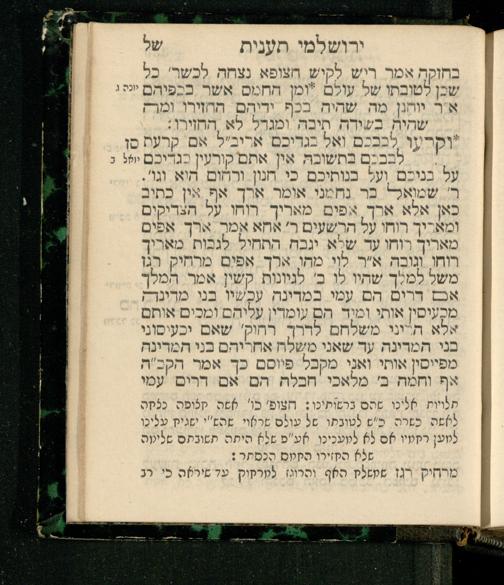 ירושלמי תענית של
בחזקה אמר ריש לקיש חצופא נצחה לכשר׳ כל
שכן לטובתו של עולם *ומן החמס אשר בכפיהם יונה ג
א״ר יוחנן מה שהיה בכף ידיהם החזירו ומה
שהיה בשידה תיבה ומגדל לא החזירו:
*וקרעו לבבכם ואל בגדיכם אריב״ל אם קרעת סן
לבבכם בתשובה אין אתם קורעין בגדיכם יואל ב
על בניכם ועל בנותיכם כי חנון ורחום הוא וגו׳.
ר׳ שמואל בר נחמני אומר ארך אף אין כתיב
כאן אלא ארך אפים מאריך רוחו על הצדיקים
ומאריך רוחו על הרשעים ר׳ אחא אמר ארך אפים
מאריך רוחו עד שלא יגבה התחיל לגבות מאריך
רוחו וגובה א״ר לוי מהו ארך אפים מרחיק רגז
משל למלך שהיו לו ב׳ לגיונות קשין אמר המלך
אם דרים הם עמי במדינה עכשיו בני מדינה
מכעיסין אותי ומיד הם עומדין עליהם ומכים אותם
אלא הריני משלחם לדרך רחוק׳ שאם יכעיסוני
בני המדינה עד שאני משלח אחריהם בני המדינה
מפייסין אותי ואני מקבל פיוסם כך אמר הקב״ה
אף וחמה ב׳ מלאכי חבלה הם אם דרים עמי
תלויות אלינו שהם ברשותינו: חצופ׳ כו׳ אשה חלופה נלחה
לאשה כשרה כ״ש לטובתו של עולם שראוי שהש״י ישגיח עלינו
למען רחמיו אם לא למענינו. אע״פ שלא היתה תשובתם שלימה
שלא החזירו החמס הנסתר:
מרחיק רגז שמשלח האף והרוגז למרחוק עד שיראה כי רב